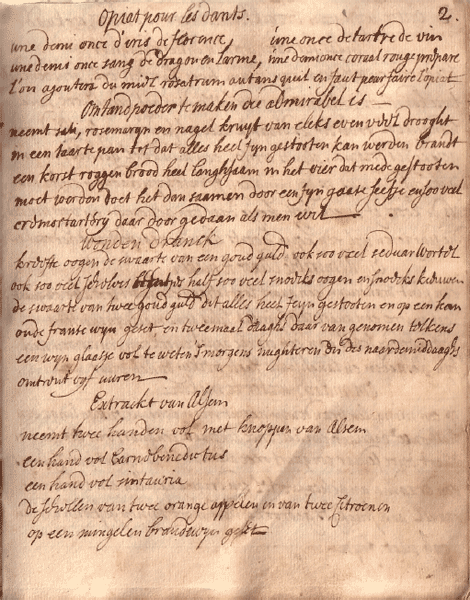 2.
Opiat pour les dants.
une demi once d'iris de florence, une once de tartre de vin
une demis once sang de dragon en larme, une demi once coral rouge prepare
l'on ajoutera du miel rosatrum autans quil en faut pour faire l'opiat
Om tandpoeder te maken die admirabel is
neemt sali, rosemaryn en nagel kruyt van elcks even veel drooght
in een taarte pan tot dat alles heel fyn gestooten kan werden brandt
een korst roggen brood heel langhsaam in het vier dat mede gestooten
moet worden doet het dan saamen door een fyn gaase seefje en soo veel
cremortartary daar door gedaan als men wil
Wonden Dranck
kreefte oogen de swaarte van een goud guld, ook soo veel seduar wortel
ook soo veel half soo veel snoeks oogen en snoeks kieuwen
de swaarte van twee goud guld dit alles heel feyn gestooten en op een kan
oude franse wyn geset en tweemael daeghs daar van genomen telkens
een wyn glaasje vol te weten smorgens nughteren en des naardemiddaaghs
omtrent vyf uuren
Extrackt van Alsem
neemt twee handen vol met knoppen van Alsem
een hand vol Cardebenedictus
een hand vol sintauria
de schellen van twee orange appelen en van twee Citroenen
op een mingelen brandewyn geset